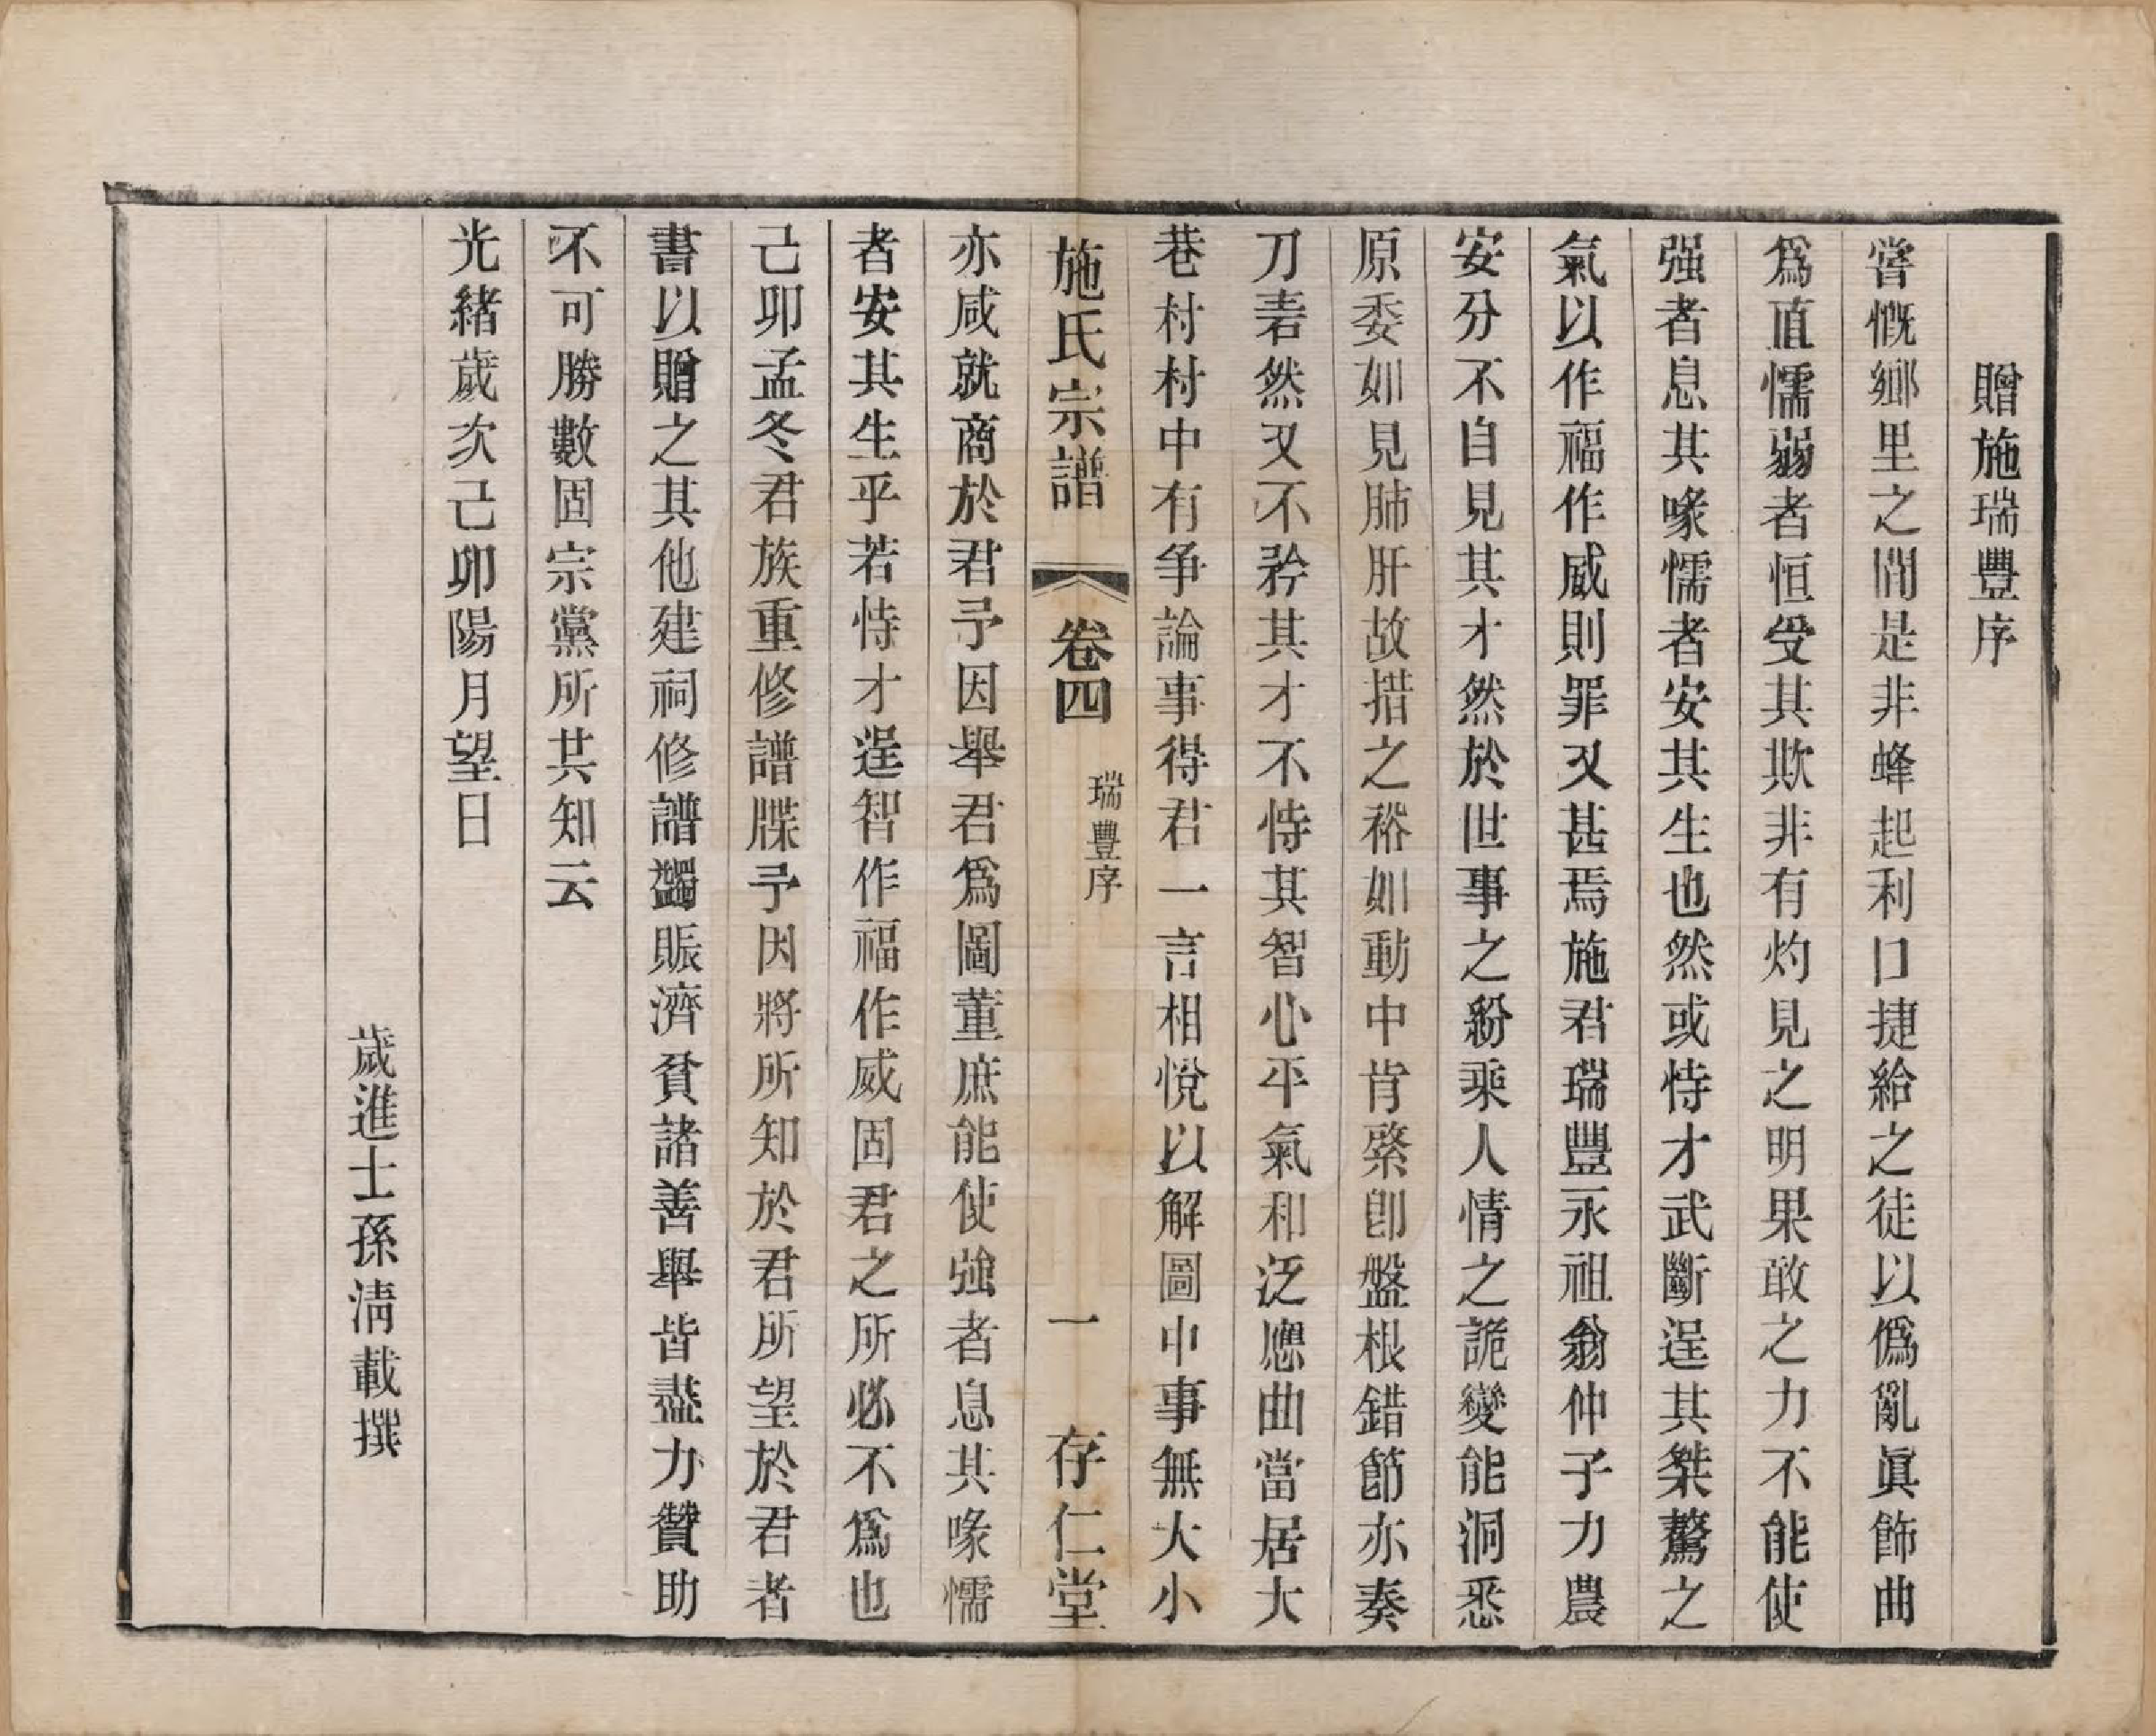 贈施瑞豐序
嘗慨鄉里之間是非蜂起利口捷給之徒以僞亂眞飾曲
爲直懦弱者恒受其欺非有灼見之明果敢之力不能使
强者息其喙懦者安其生也然或恃才武斷逞其桀驁之
氣以作福作威則罪又甚焉施君瑞豐永祖翁仲子力農
安分不自見其才然於世事之紛乘人情之詭變能洞悉
原委如見肺肝故措之裕如動中肯綮卽盤根錯節亦奏
刀砉然又不矜其才不恃其智心平氣和泛應曲當居大
巷村村中有爭論事得君一言相悅以解圖中事無大小
施氏宗譜 卷四 瑞豐序 一 存仁堂
亦咸就商於君予因舉君爲圖董庶能使強者息其喙懦
者安其生乎若恃才逞智作福作威固君之所必不爲也
己卯孟冬君族重修譜牒予因將所知於君所望於君者
書以贈之其他建祠修譜蠲賑濟貧諸善舉皆盡力贊助
不可勝數固宗黨所共知云
光緒歲次己卯陽月望日
歲進士孫淸載撰